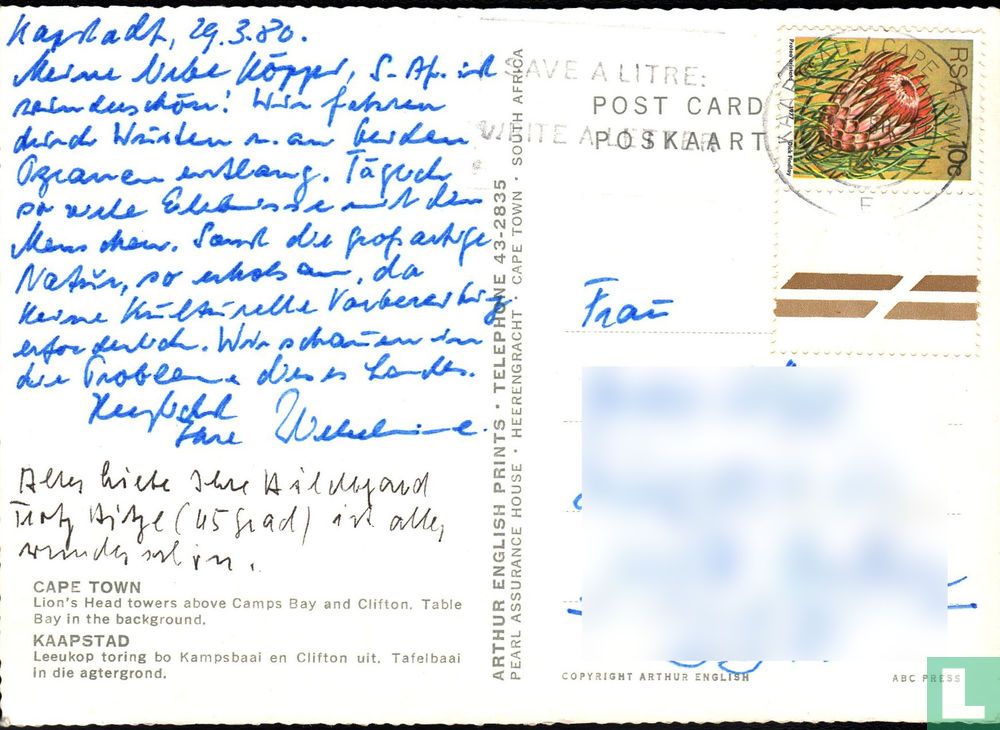 Kapstadt, 29.3.80.
Meine liebe Köpper, S-Af. ist
wunderschön! Wir fahren
durch Wüsten u. an beiden
Ozeanen entlang. Täglich
so viele Erlebnisse mit den
Menschen. Sonst die großartige
Natur, so erholsam, da
keine kulturelle Vorbereitung
erforderlich. Wir schauen in
die Probleme dieses Landes.
Herzlichst
Ihre Wilhelmine.
Alles Liebe Ihre Hildegard
Trotz Hitze (45 Grad) ist alles
wunderschön.
CAPE TOWN
Lion's Head towers above Camps Bay and Clifton. Table
Bay in the background.
KAAPSTAD
Leeukop toring bo Kampsbaai en Clifton uit. Tafelbaai
in die agtergrond.
ARTHUR ENGLISH PRINTS · TELEPHONE 43-2835
PEARL ASSURANCE HOUSE · HEERENGRACHT · CAPE TOWN · SOUTH AFRICA
SAVE A LITRE:
WRITE A LETTER
POST CARD
POSKAART
RSA
10c
Dick Findlay
1977
CAPE
Frau
COPYRIGHT ARTHUR ENGLISH
ABC PRESS
L